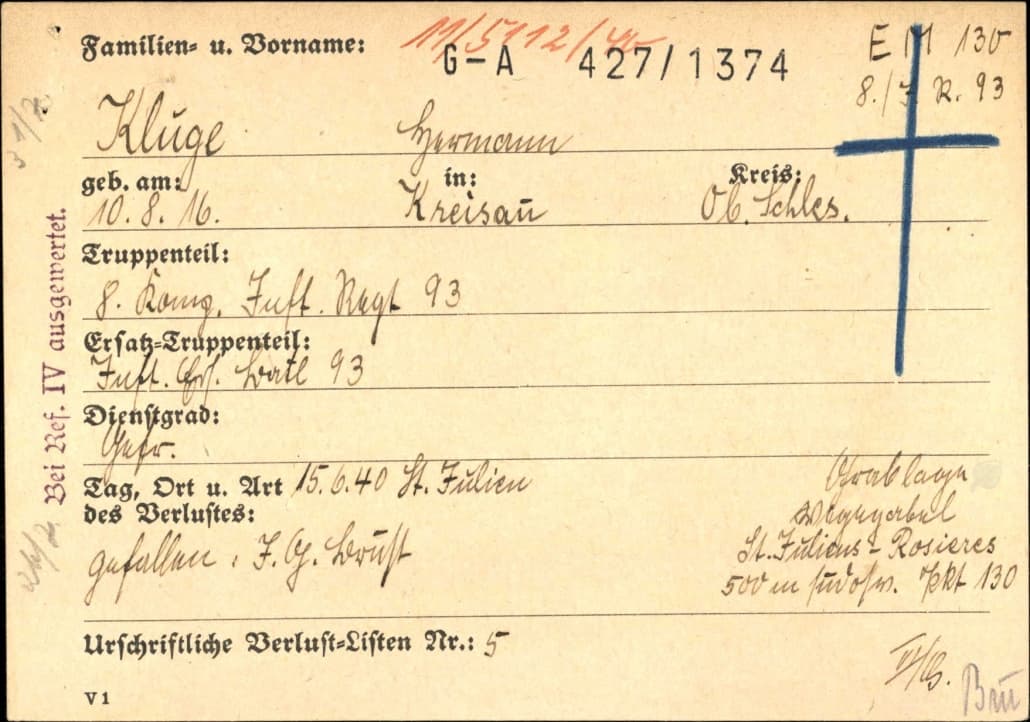 Familien- u. Vorname:
11/5112/40
G-A 427/1374
EM 130
8./J.R. 93
Kluge Hermann
geb. am: in: Kreis:
10. 8. 16. Kreisau Ob. Schles.
Truppenteil:
8. Komp. Inft. Regt 93
Ersatz-Truppenteil:
Inft. Ers. Batl 93
Dienstgrad:
Gefr.
Tag, Ort u. Art 15.6.40 St. Julien
des Verlustes:
gefallen, J. G. Brust
Grablage
Wegegabel
St. Juliens - Rosieres
500 m südostw. Pkt 130
Urschriftliche Verlust-Listen Nr.: 5
V 1
Brü
Bei Ref. IV ausgewertet.